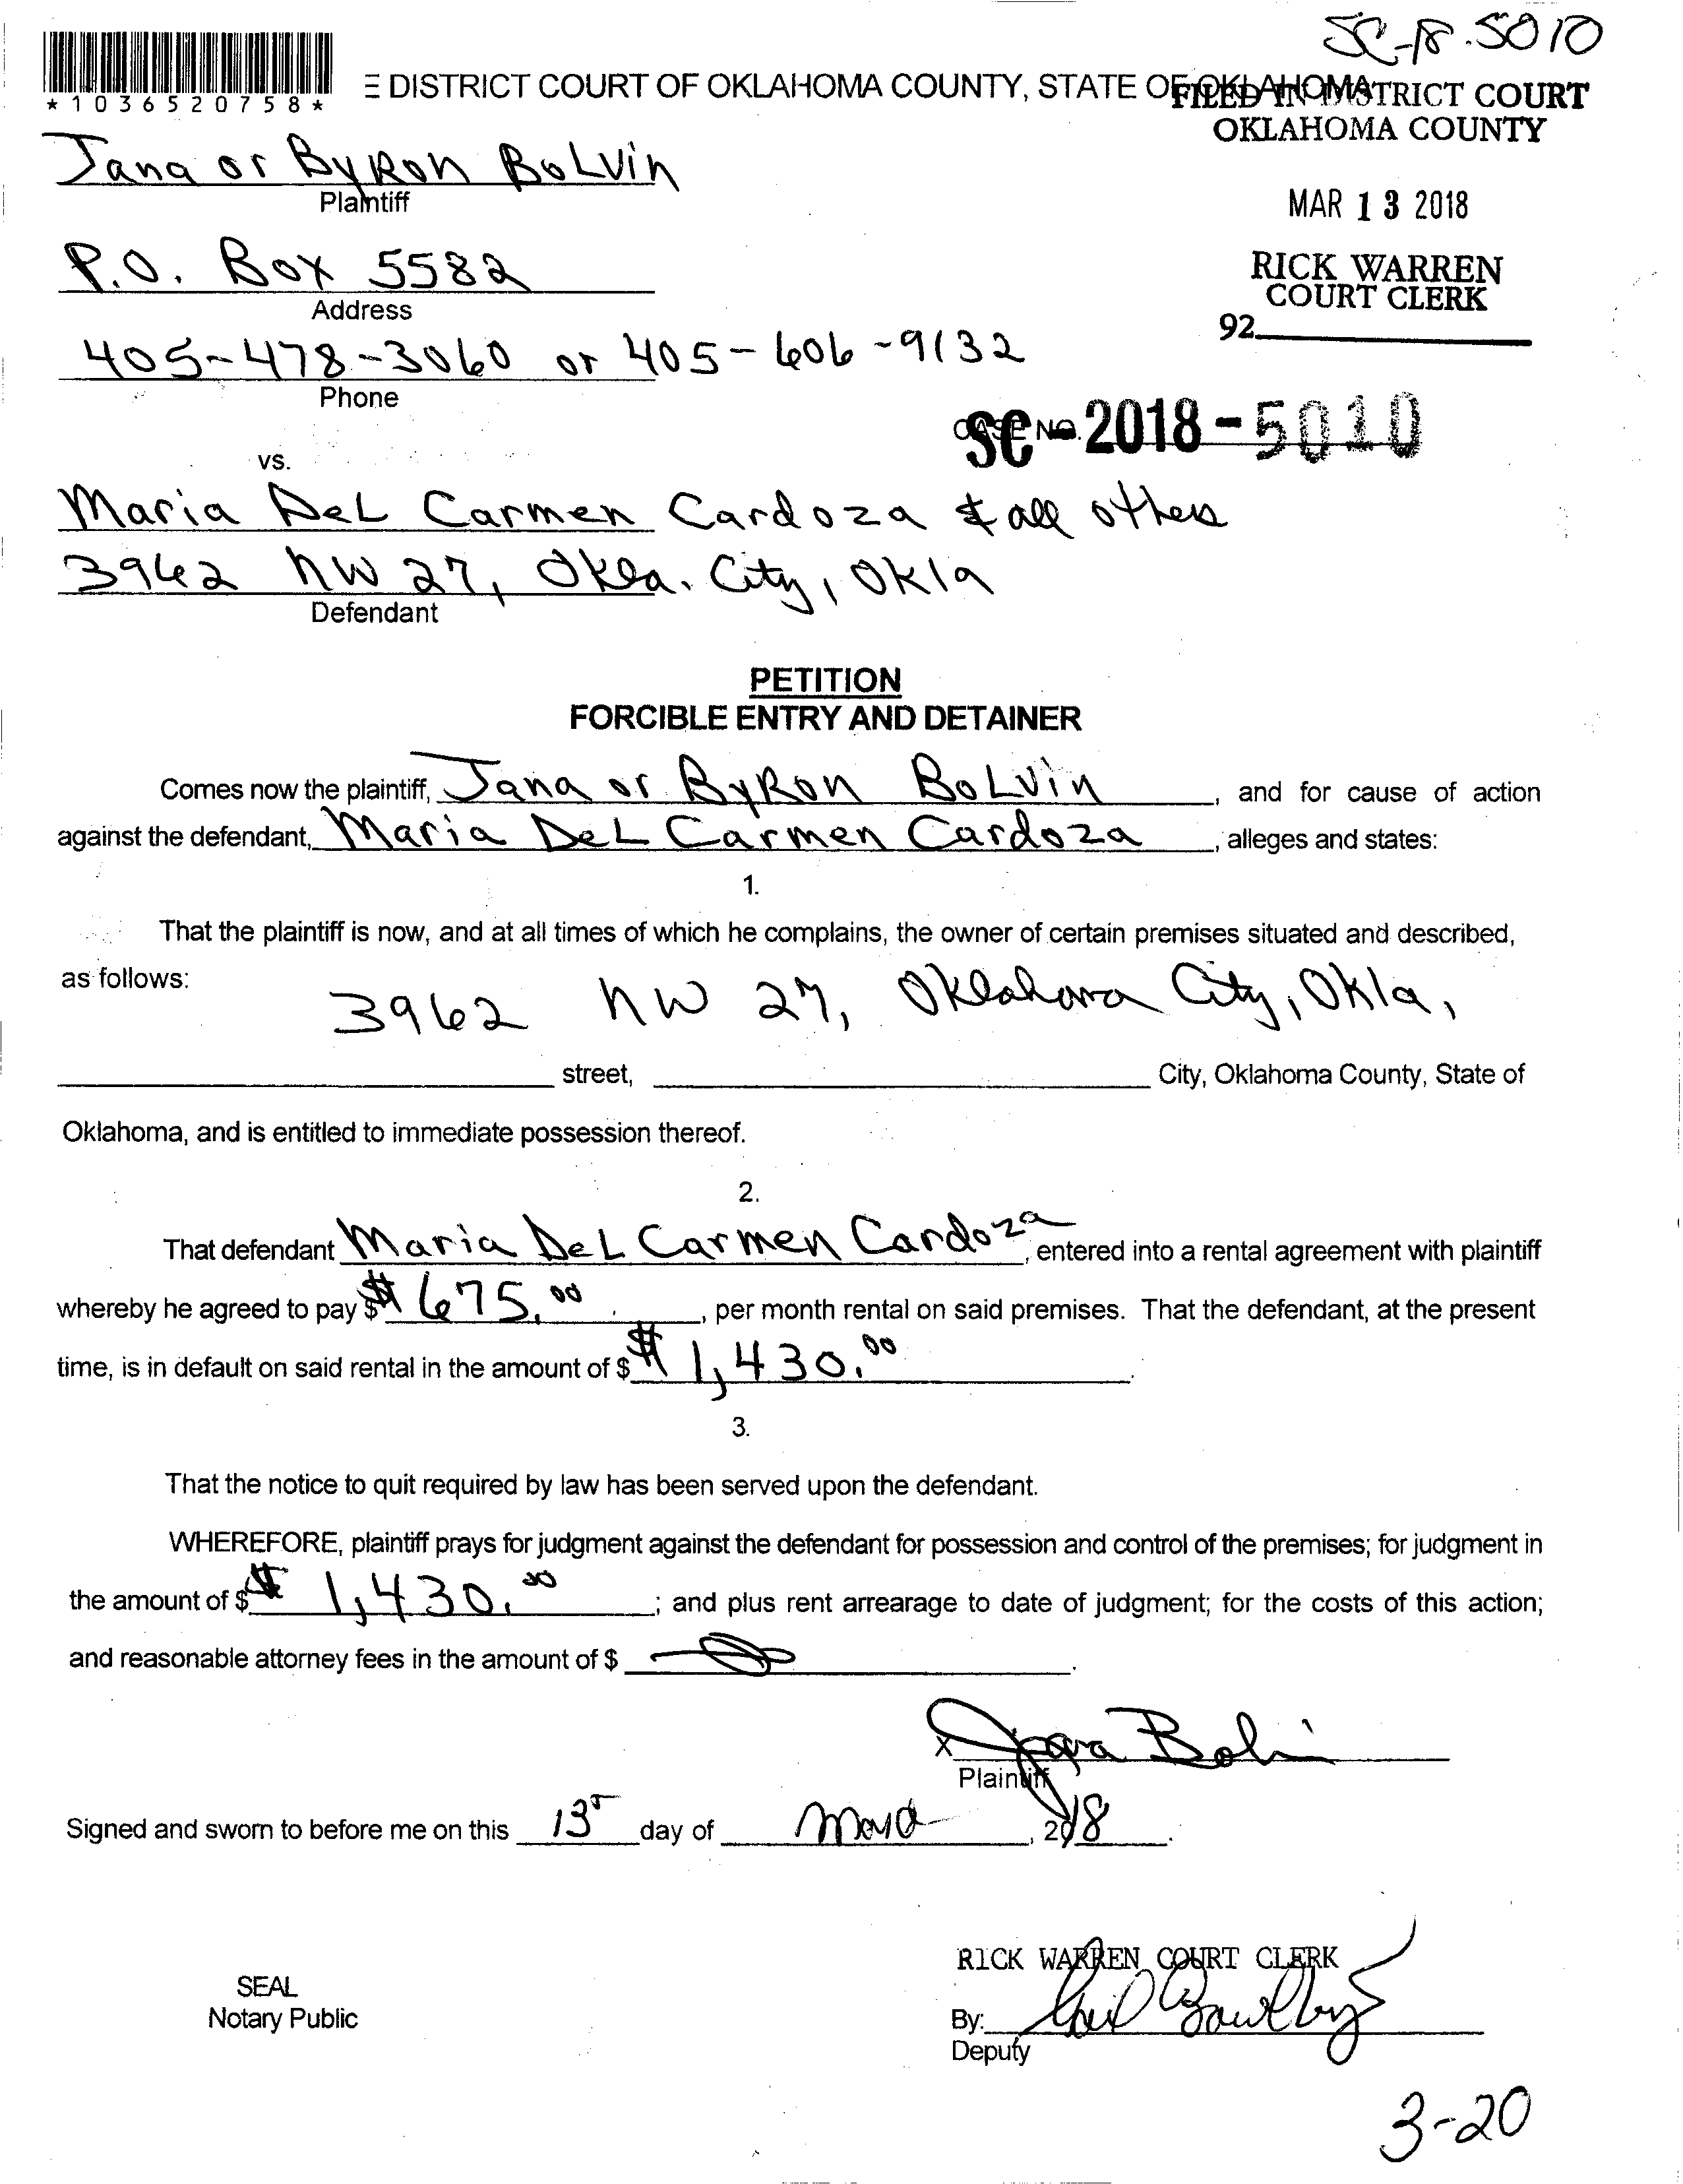 SC-18-5010
*1036520758*
E DISTRICT COURT OF OKLAHOMA COUNTY, STATE OF OKLAHOMA
FILED IN DISTRICT COURT
OKLAHOMA COUNTY
Jana or Byron Bolvin
Plaintiff
MAR 13 2018
P.O. Box 5582
Address
RICK WARREN
COURT CLERK
92
405-478-3060 or 405-606-9132
Phone
CASE NO. SC-2018-5010
vs.
Maria Del Carmen Cardoza & all others
3962 NW 27, Okla. City, Okla
Defendant
PETITION
FORCIBLE ENTRY AND DETAINER
Comes now the plaintiff, Jana or Byron Bolvin, and for cause of action
against the defendant, Maria Del Carmen Cardoza, alleges and states:
1.
That the plaintiff is now, and at all times of which he complains, the owner of certain premises situated and described,
as follows:
3962 NW 27, Oklahoma City, Okla,
street, City, Oklahoma County, State of
Oklahoma, and is entitled to immediate possession thereof.
2.
That defendant Maria Del Carmen Cardoza, entered into a rental agreement with plaintiff
whereby he agreed to pay $ $675.00, per month rental on said premises. That the defendant, at the present
time, is in default on said rental in the amount of $ $1,430.00.
3.
That the notice to quit required by law has been served upon the defendant.
WHEREFORE, plaintiff prays for judgment against the defendant for possession and control of the premises; for judgment in
the amount of $ $1,430.00; and plus rent arrearage to date of judgment; for the costs of this action;
and reasonable attorney fees in the amount of $ .
X Jana Bolvin
Plaintiff
Signed and sworn to before me on this 13 day of March, 2018.
RICK WARREN COURT CLERK
SEAL
Notary Public
By:
Deputy
3-20